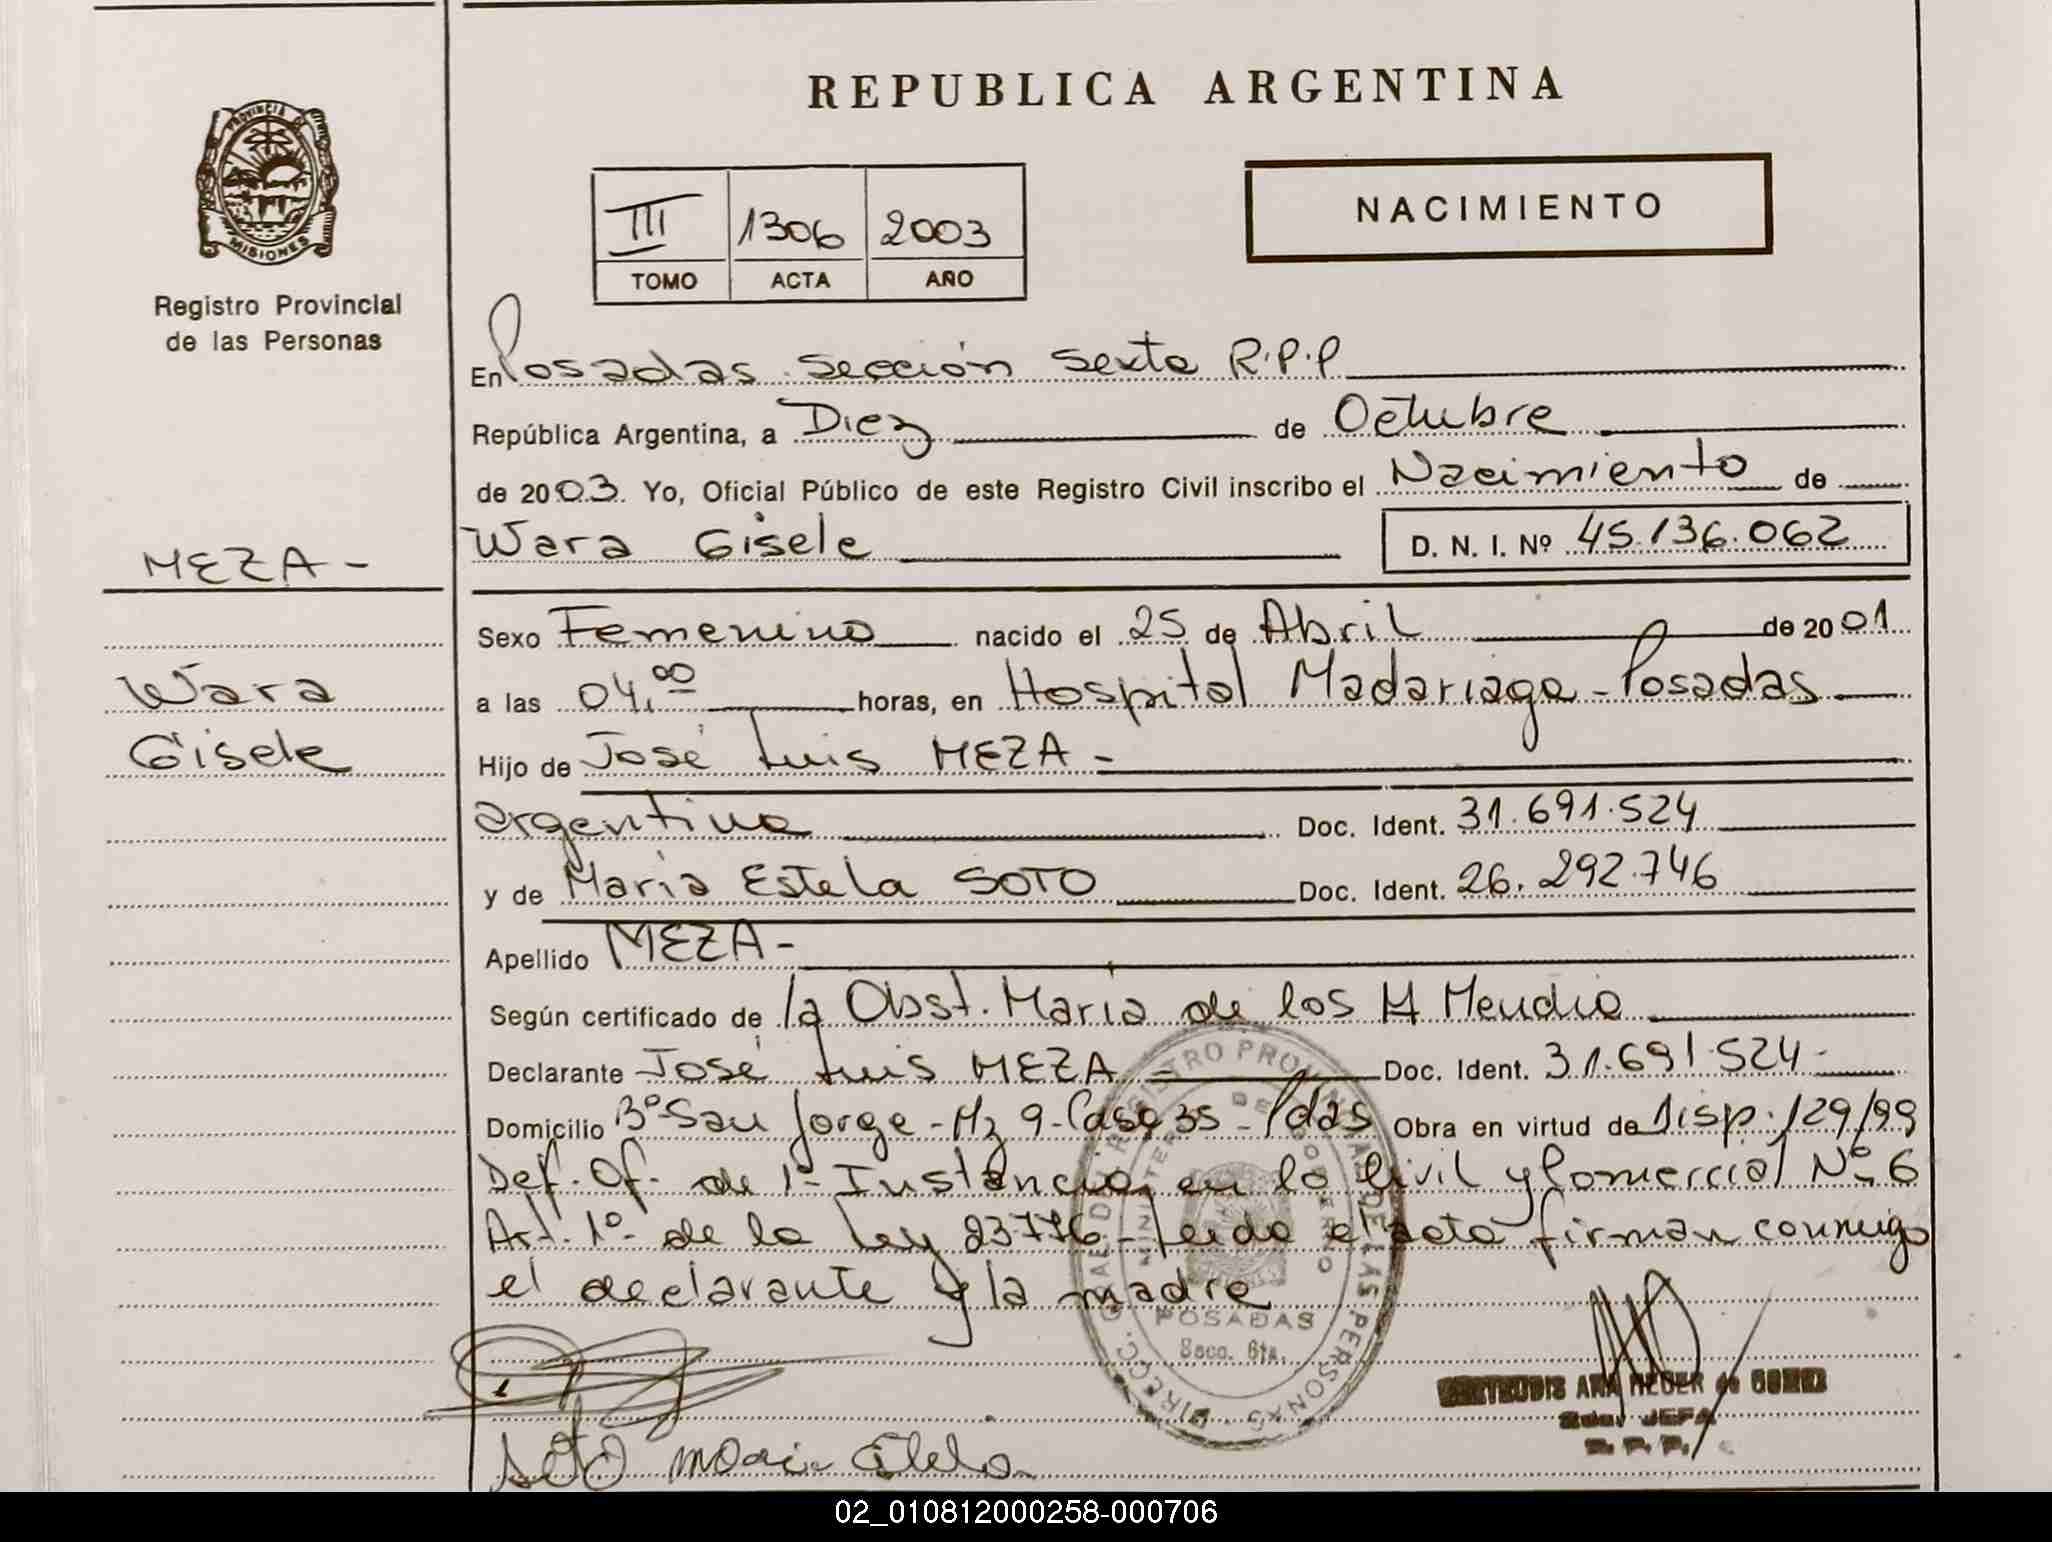 REPUBLICA ARGENTINA
PROVINCIA DE
MISIONES
Registro Provincial
de las Personas
NACIMIENTO
III 1306 2003
TOMO ACTA AÑO
En Posadas Sección Sexta R.P.P
República Argentina, a Diez de Octubre
de 2003. Yo, Oficial Público de este Registro Civil inscribo el Nacimiento de
Wara Gisele D. N. I. Nº 45.136.062
MEZA -
Wara
Gisele
Sexo Femenino nacido el 25 de Abril de 2001
a las 04,00 horas, en Hospital Madariaga - Posadas
Hijo de José Luis MEZA -
argentina Doc. Ident. 31.691.524
y de Maria Estela SOTO Doc. Ident. 26.292.746
Apellido MEZA -
Según certificado de la Obst. Maria de los
Declarante José Luis MEZA - Doc. Ident. 31.691.524-
Domicilio Bº San Jorge - Mz 9 - Casa 35 - Pdas Obra en virtud de Disp. 129/99
Def. Of. de 1º Instancia en lo Civil y Comercial Nº 6
Art. 1º de la Ley 23776 - Leida el acta firman conmigo
el declarante y la madre
DIRECC. GRAL. DEL REGISTRO PROVINCIAL DE LAS PERSONAS
MINISTERIO DE GOBIERNO
POSADAS
Secc. 6ta.
GERTRUDIS ANA de GOMEZ
JEFA
R. P. P.
Soto Maria Estela
02_010812000258-000706